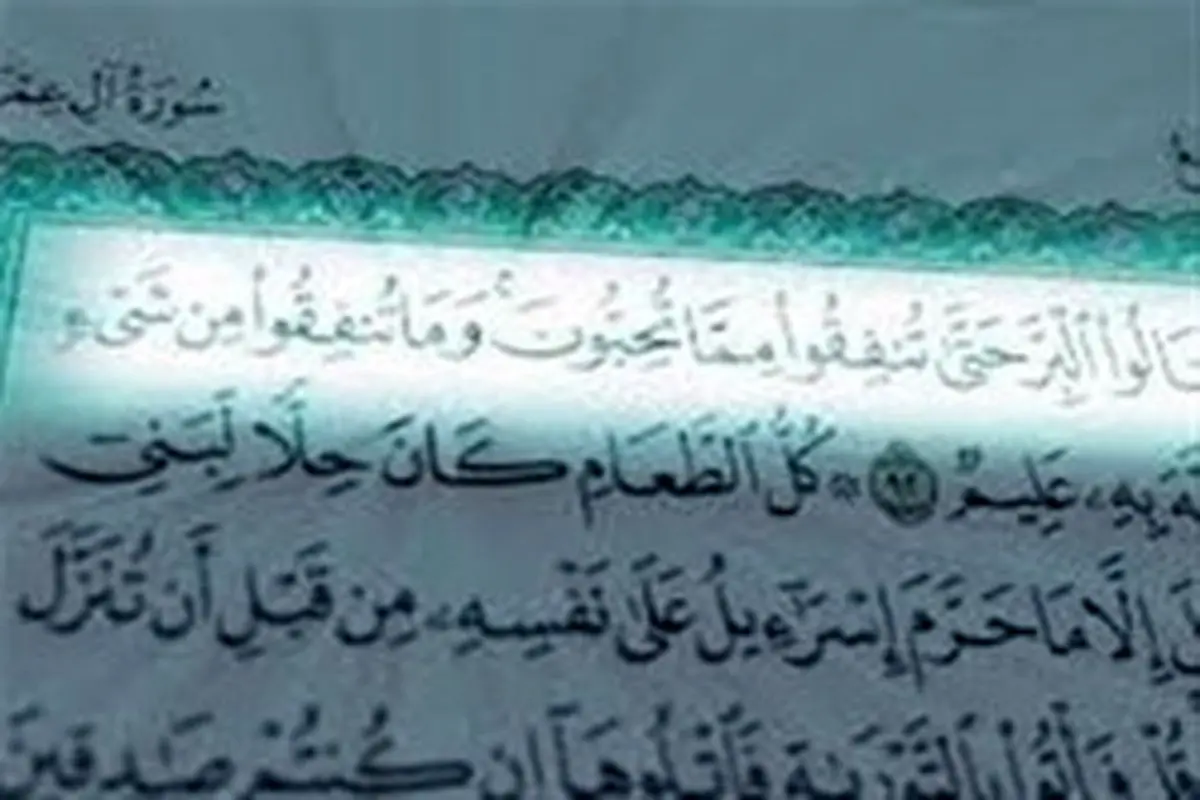 سُورَةُ آلِ عِمْرَ
نَالُوا۟ ٱلْبِرَّ حَتَّىٰ تُنفِقُوا۟ مِمَّا تُحِبُّونَ ۚ وَمَا تُنفِقُوا۟ مِن شَىْءٍ
بِهِۦ عَلِيمٌ ﴿٩٢﴾ ۞ كُلُّ ٱلطَّعَامِ كَانَ حِلًّا لِّبَنِىٓ
إِلَّا مَا حَرَّمَ إِسْرَٰٓءِيلُ عَلَىٰ نَفْسِهِۦ مِن قَبْلِ أَن تُنَزَّلَ
قُلْ فَأْتُوا۟ بِٱلتَّوْرَىٰةِ فَٱتْلُوهَآ إِن كُنتُمْ صَٰدِقِينَ